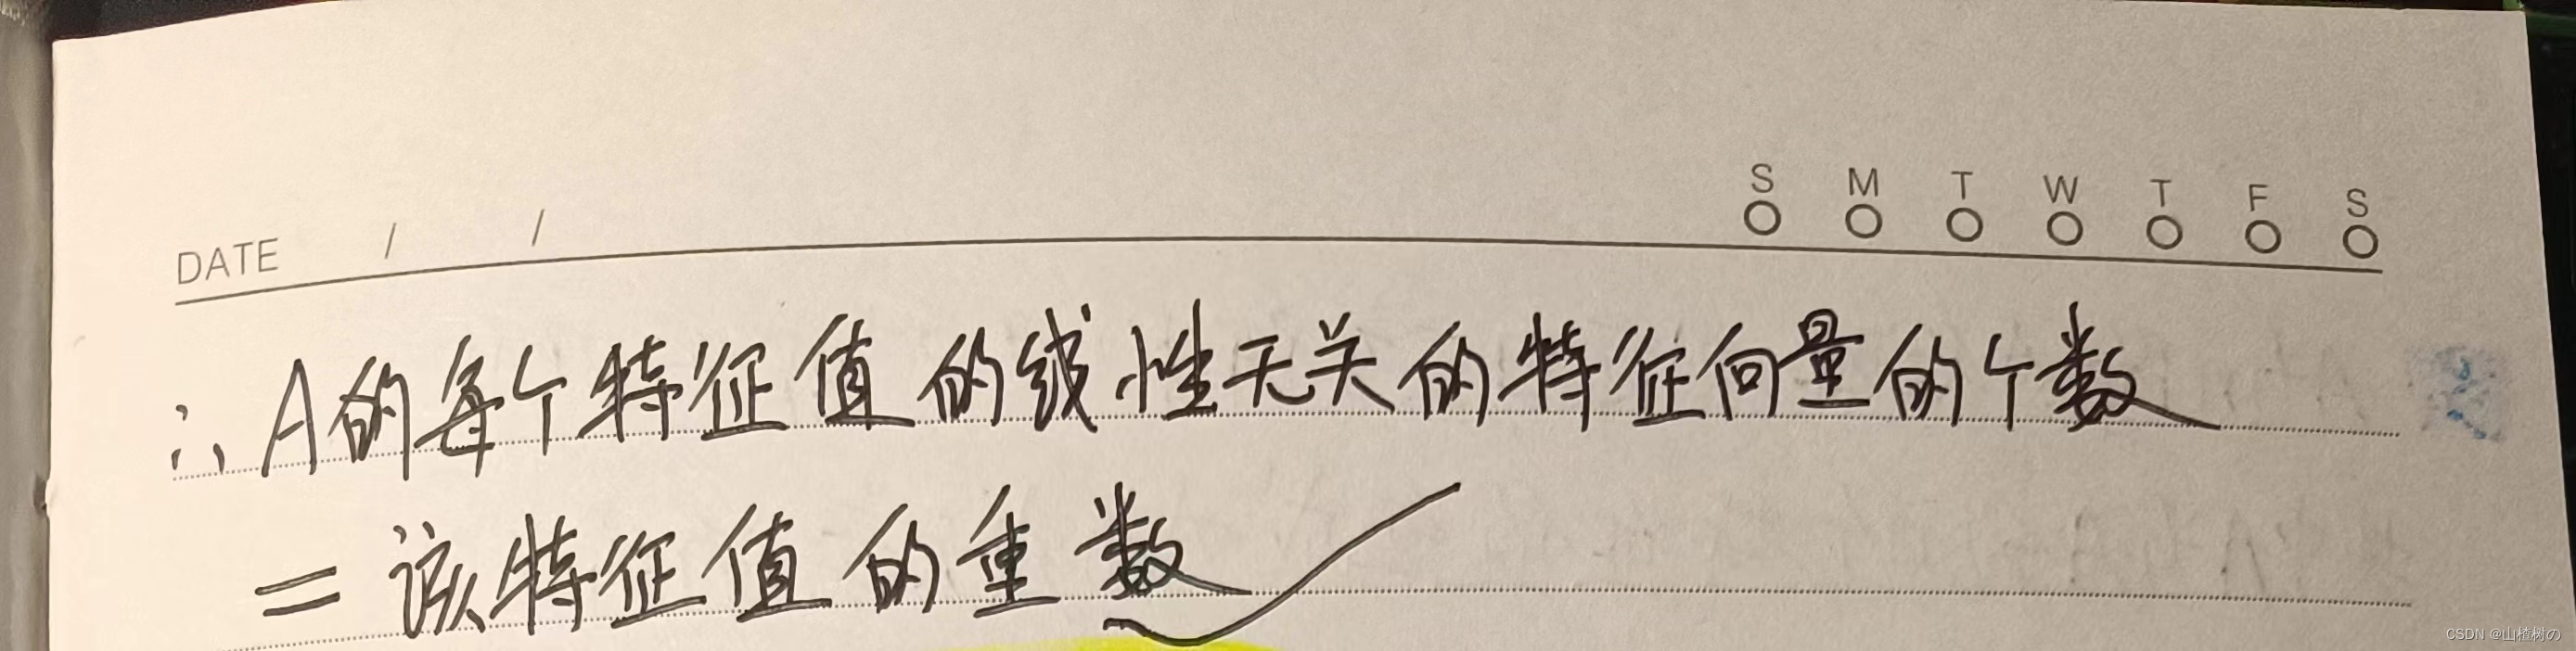 S M T W T F S
DATE / /
∴ A的每个特征值的线性无关的特征向量的个数
= 该特征值的重数
CSDN @山楂树の